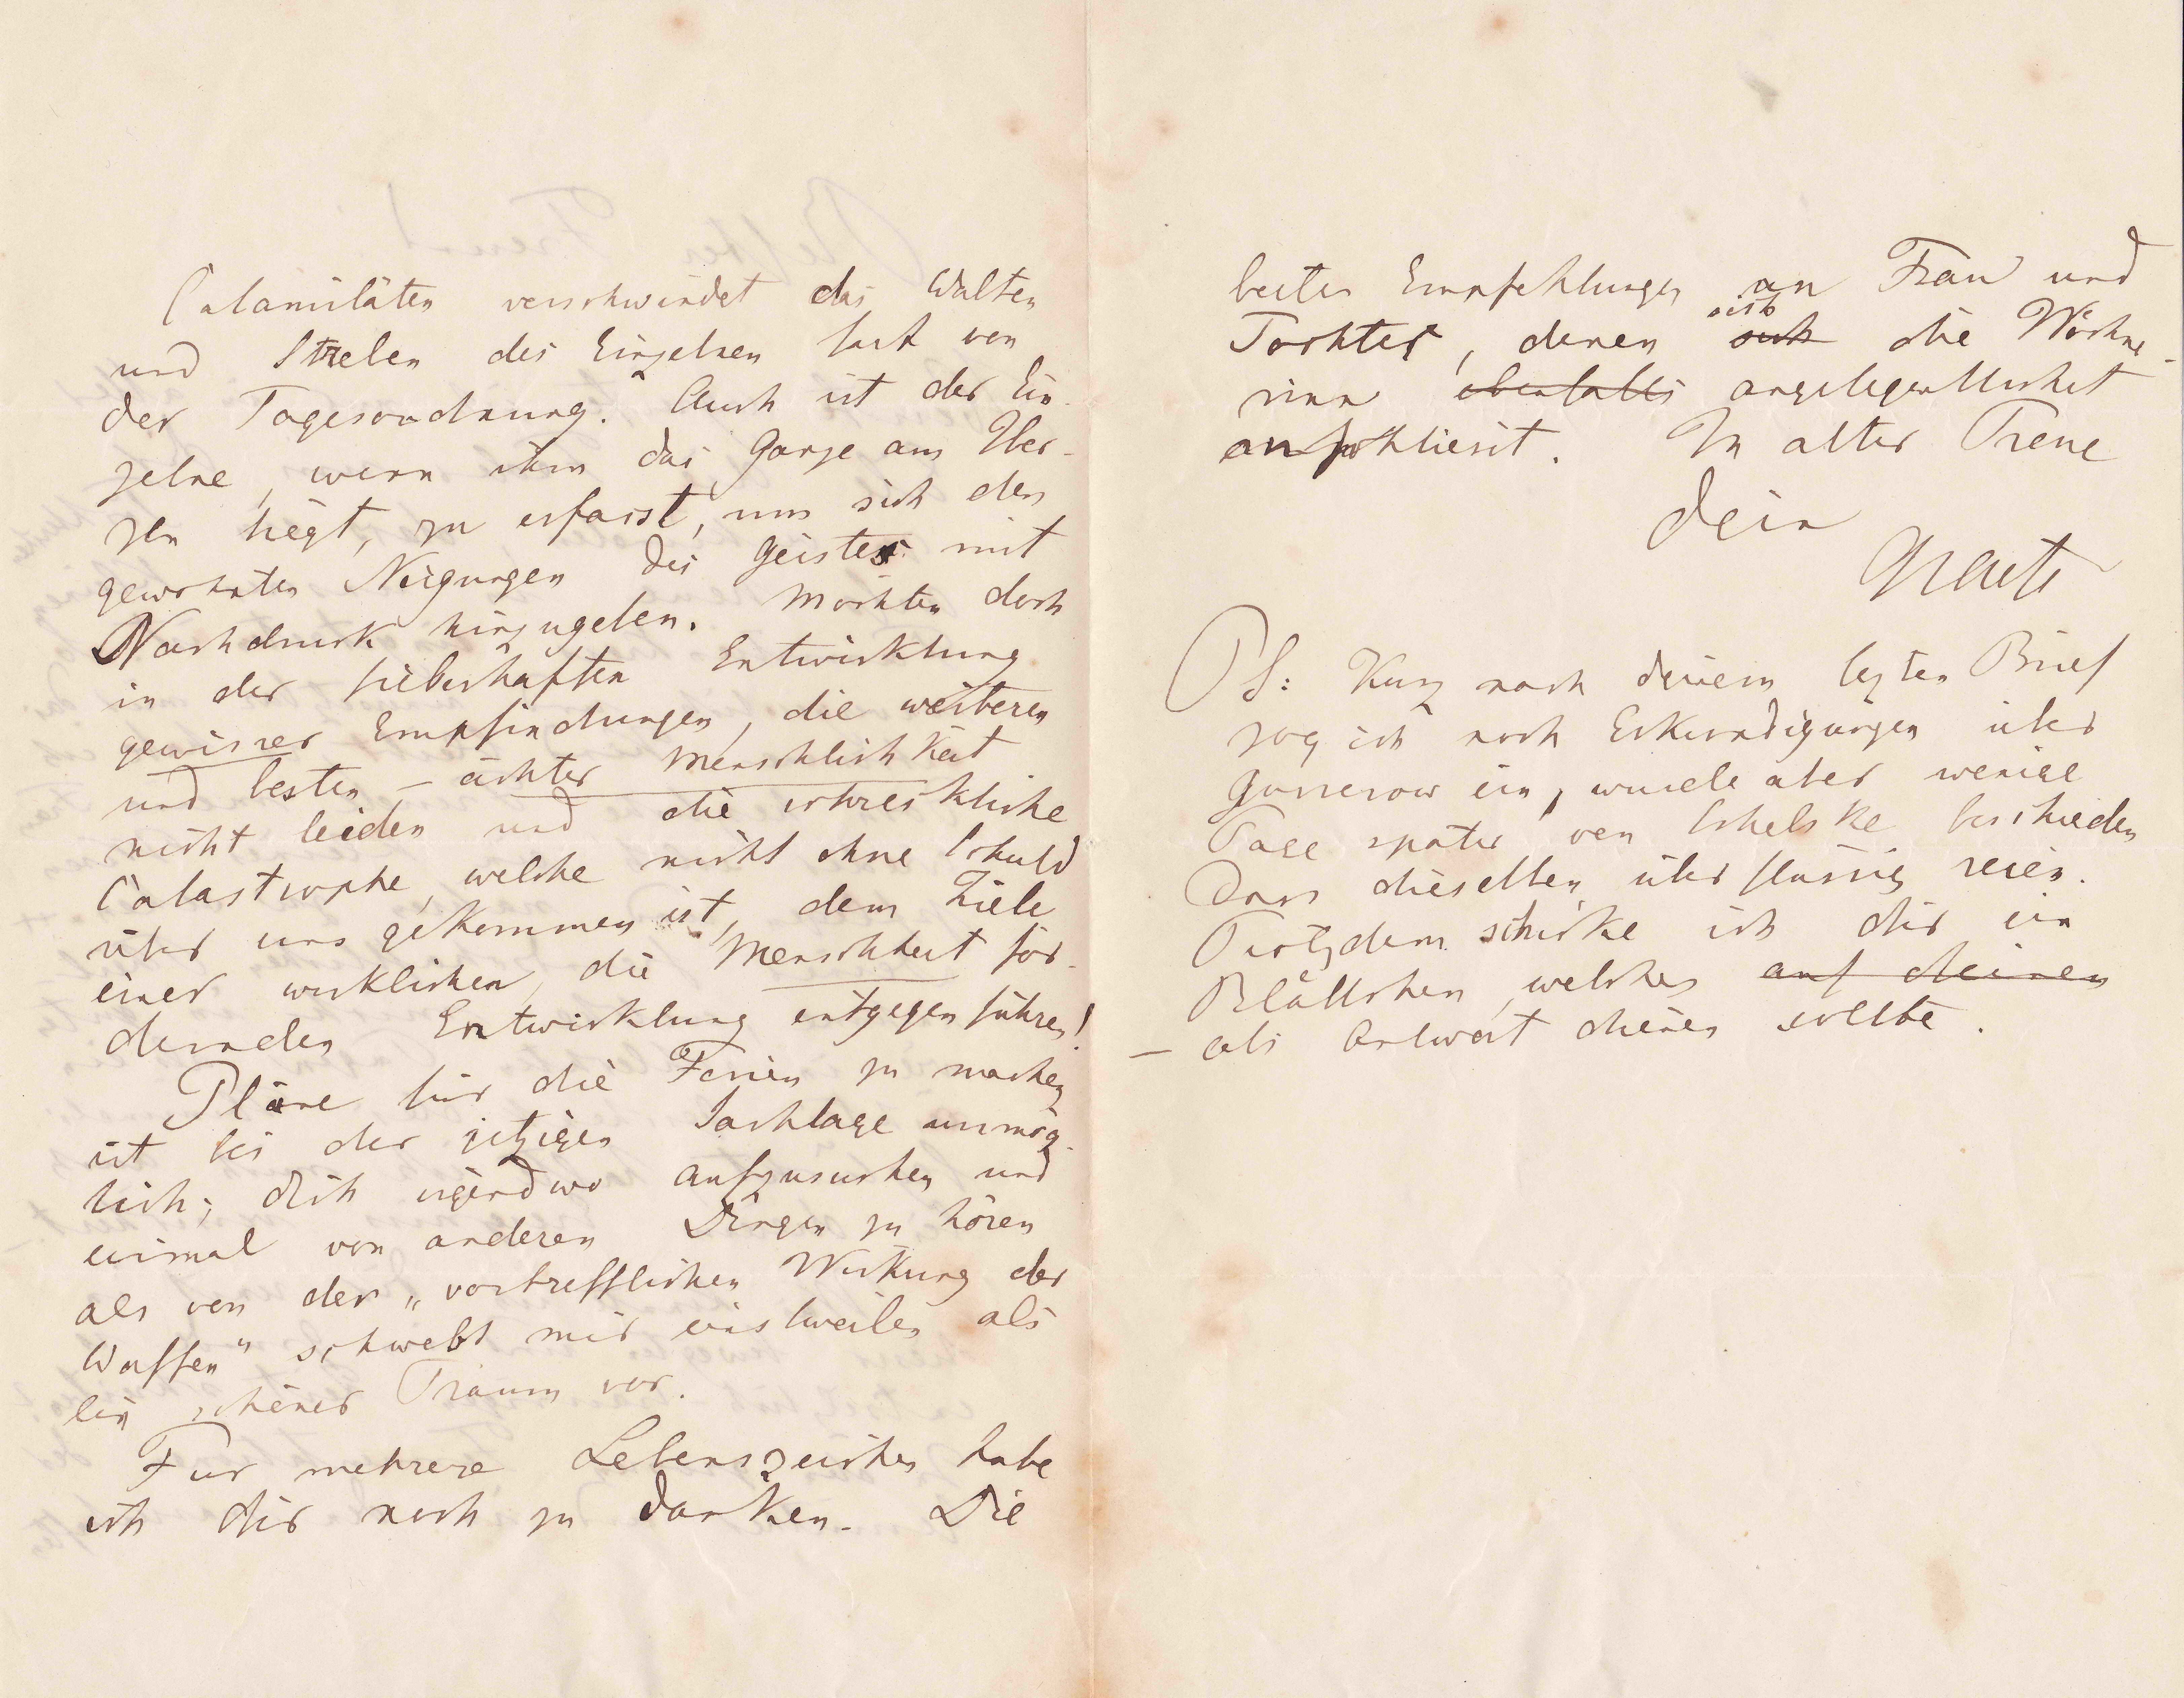 Calamitäten verschwindet das Walten
und Streben des Einzelnen fast von
der Tagesordnung. Auch ist der Ein-
zelne, wenn ihm das Ganze am Her-
zen liegt, zu erfasst, um sich den
gewohnten Neigungen des Geistes mit
Nachdruck hinzugeben. Möchten doch
in der fieberhaften Entwicklung
gewisser Empfindungen, die weiteren
und besten – ächter Menschlichkeit
nicht leiden und die schreckliche
Catastrophe, welche nicht ohne Schuld
über uns gekommen ist, dem Ziele
einer wirklichen, die Menschheit för-
dernden Entwicklung entgegen führen!
Pläne für die Ferien zu machen
ist bei der jetzigen Sachlage unmög-
lich; dich irgendwo aufzusuchen und
einmal von anderen Dingen zu hören
als von der „vortrefflichen Wirkung der
Waffen“ schwebt mir einstweilen als
ein schöner Traum vor.
Für mehrere Lebenszeichen habe
ich dir noch zu danken. Die
besten Empfehlungen an Frau und
Tochter, denen sich die Wöchne-
rinn ebenfalls angelegentlichst
anschliesst. In alter Treue
dein
Graefe
PS: Kurz nach deinem lezten Brief
zog ich noch Erkundigungen über
Gusserow ein, wurde aber wenige
Tage später von Schelske beschieden
dass dieselben überflüssig seien.
Trotzdem schicke ich dir ein
Blättchen, welches auf deinen
– als Antwort dienen sollte.